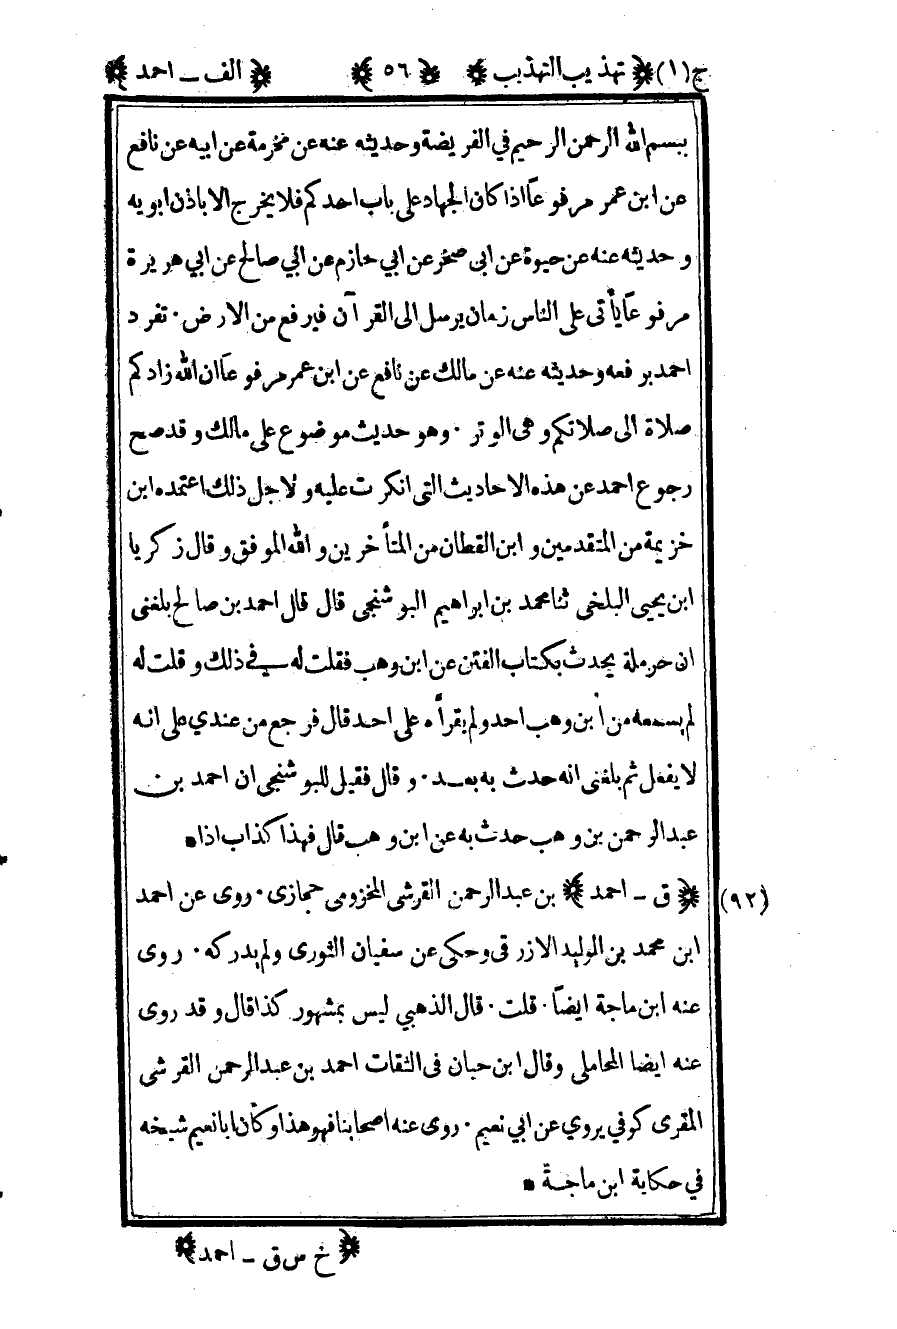 ج(١) ﴿ تهذيب التهذيب ﴾ ﴿ ٥٦ ﴾ ﴿ الف ـ احمد ﴾
ببسم الله الرحمن الرحيم في الفريضة وحديثه عنه عن مخرمة عن ابيه عن نافع
عن ابن عمر مرفوعاً اذا كان الجهاد على باب احدكم فلا يخرج الا باذن ابويه
وحديثه عنه عن حيوة عن ابى صخر عن ابي حازم عن ابي صالح عن ابي هريرة
مرفوعاً يأتى على الناس زمان يرسل الى القرآن فيرفع من الارض ٠ تفرد
احمد برفعه وحديثه عنه عن مالك عن نافع عن ابن عمر مرفوعاً ان الله زادكم
صلاة الى صلاتكم وهى الوتر ٠ وهو حديث موضوع على مالك وقد صح
رجوع احمد عن هذه الاحاديث التى انكرت عليه ولاجل ذلك اعتمده ابن
خزيمة من المتقدمين وابن القطان من المتأخرين والله الموفق وقال زكريا
ابن يحيى البلخى ثنا محمد بن ابراهيم البوشنجى قال قال احمد بن صالح بلغنى
ان حرملة يحدث بكتاب الفتن عن ابن وهب فقلت له فى ذلك وقلت له
لم يسمعه من ابن وهب احد ولم يقرأه على احد قال فرجع من عندي على انه
لا يفعل ثم بلغنى انه حدث به بعد ٠ وقال فقيل للبوشنجى ان احمد بن
عبدالرحمن بن وهب حدث به عن ابن وهب قال فهذا كذاب اذا ٭
(٩٢) ﴿ ق ـ احمد ﴾ بن عبدالرحمن القرشى المخزومى حجازى ٠ روى عن احمد
ابن محمد بن الوليد الازرقى وحكى عن سفيان الثورى ولم يدركه ٠ روى
عنه ابن ماجة ايضاً ٠ قلت ٠ قال الذهبي ليس بمشهور كذا قال وقد روى
عنه ايضا المحاملى وقال ابن حبان فى الثقات احمد بن عبدالرحمن القرشى
المقرى كوفي يروي عن ابي نعيم ٠ روى عنه اصحابنا فهو هذا وكأن ابا نعيم شيخه
في حكاية ابن ماجة ٭
﴿ خ س ق ـ احمد ﴾